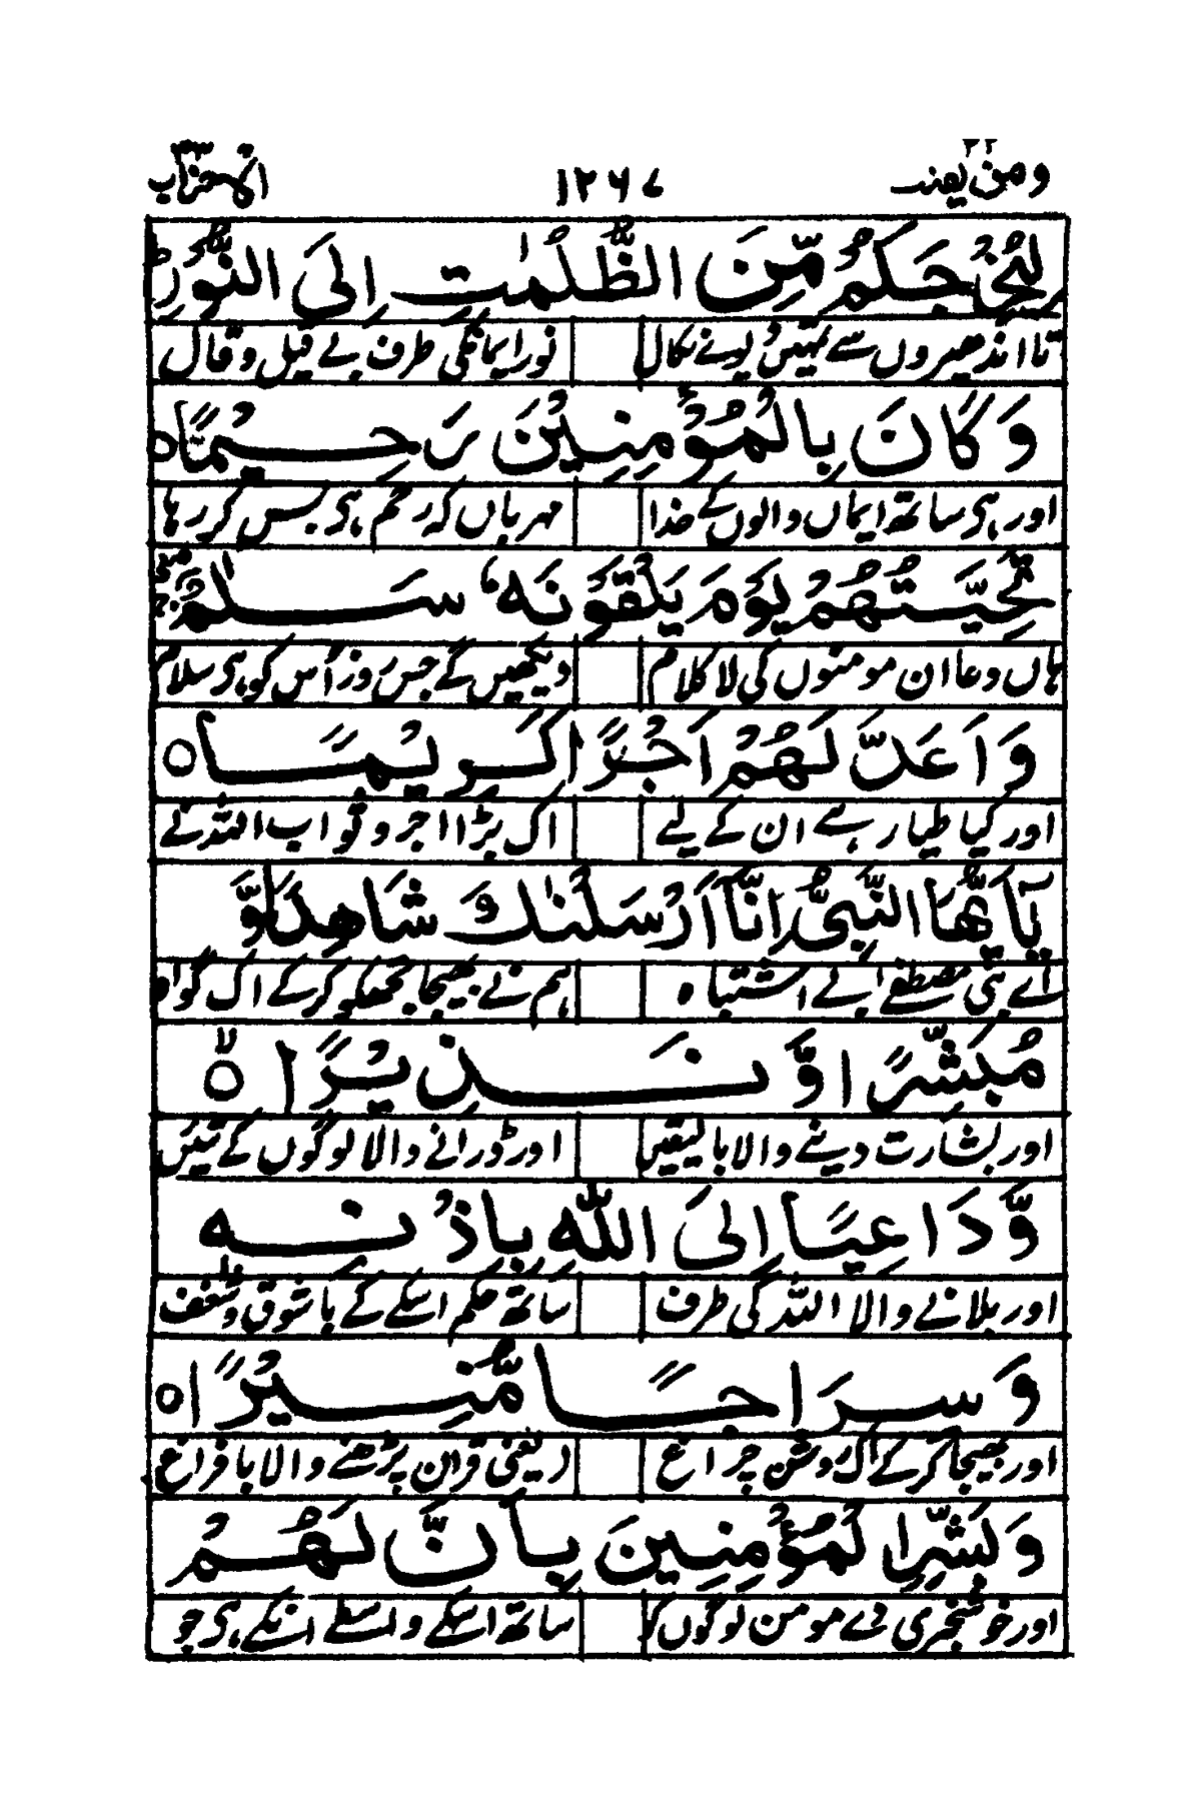 ومن یقنت ۲۲ ۱۲۶۷ الاحزاب ۳۳
لِيُخْرِجَكُمْ مِّنَ الظُّلُمٰتِ اِلَى النُّوْرِ ط
تا اندھیروں سے تمہیں لیوے نکال نور ایماں کی طرف بے قیل و قال
وَكَانَ بِالْمُؤْمِنِيْنَ رَحِيْمًا ○
اور ہی ساتھ ایماں والوں کے خدا مہرباں کہ رحم ہی بس کر رہا
تَحِيَّتُهُمْ يَوْمَ يَلْقَوْنَهٗ سَلٰمٌ
ہاں دعا ان مومنوں کی لا کلام دیکھیں گے جس روز اُس کو ہی سلام
وَاَعَدَّ لَهُمْ اَجْرًا كَرِيْمًا ○
اور کیا طیار ہے ان کے لیے اک بڑا اجر و ثواب اللہ نے
يٰٓاَيُّهَا النَّبِىُّ اِنَّآ اَرْسَلْنٰكَ شَاهِدًا وَّ
اے نبی مصطفےٰ بے اشتباہ ہم نے بھیجا تجھکو کر کے اک گواہ
مُبَشِّرًا وَّنَذِيْرًا ○ لا
اور بشارت دینے والا بالیقیں اور ڈرانے والا لوگوں کے تئیں
وَّدَاعِيًا اِلَى اللّٰهِ بِاِذْنِهٖ
اور بلانے والا اللہ کی طرف ساتھ حکم اسکے کے با شوق و شغف
وَسِرَاجًا مُّنِيْرًا ○
اور بھیجا کر کے اک روشن چراغ (یعنی قرآن پڑھنے والا با فراغ
وَبَشِّرِ الْمُؤْمِنِيْنَ بِاَنَّ لَهُمْ
اور خوشخبری دے مومن لوگوں کو ساتھ اسکے واسطے انکے ہی جو